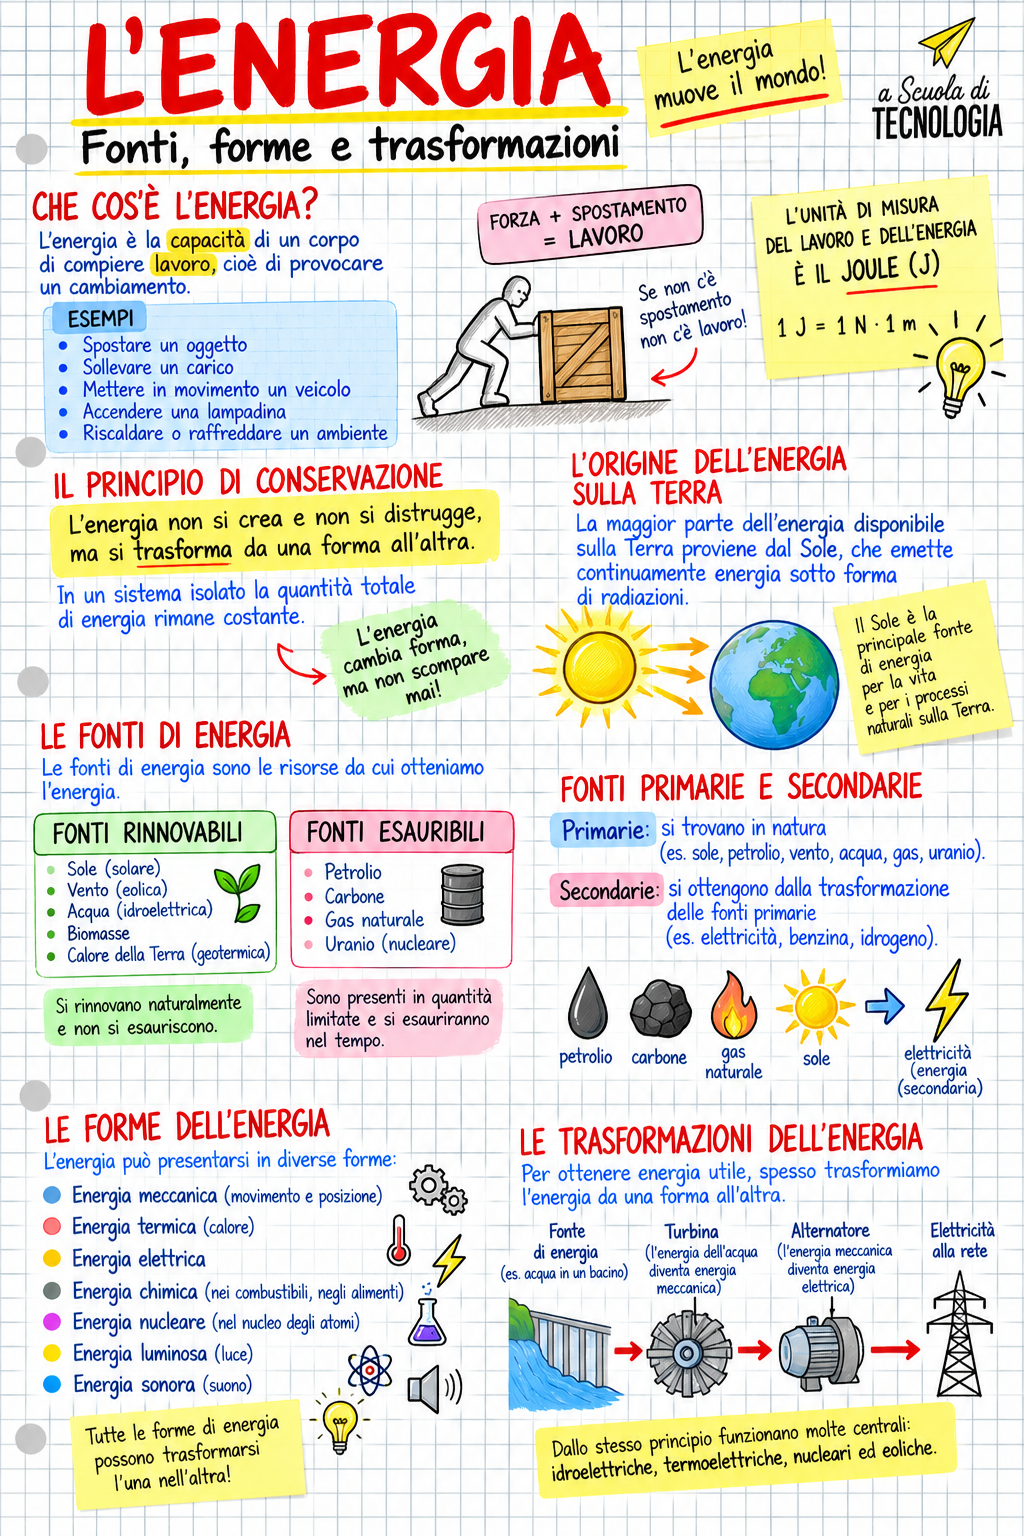 L'ENERGIA
Fonti, forme e trasformazioni
L'energia
muove il mondo!
a Scuola di
TECNOLOGIA
CHE COS'È L'ENERGIA?
L'energia è la capacità di un corpo
di compiere lavoro, cioè di provocare
un cambiamento.
ESEMPI
• Spostare un oggetto
• Sollevare un carico
• Mettere in movimento un veicolo
• Accendere una lampadina
• Riscaldare o raffreddare un ambiente
FORZA + SPOSTAMENTO
= LAVORO
Se non c'è
spostamento
non c'è lavoro!
L'UNITÀ DI MISURA
DEL LAVORO E DELL'ENERGIA
È IL JOULE (J)
1 J = 1 N · 1 m
IL PRINCIPIO DI CONSERVAZIONE
L'energia non si crea e non si distrugge,
ma si trasforma da una forma all'altra.
In un sistema isolato la quantità totale
di energia rimane costante.
L'energia
cambia forma,
ma non scompare
mai!
L'ORIGINE DELL'ENERGIA
SULLA TERRA
La maggior parte dell'energia disponibile
sulla Terra proviene dal Sole, che emette
continuamente energia sotto forma
di radiazioni.
Il Sole è la
principale fonte
di energia
per la vita
e per i processi
naturali sulla Terra.
LE FONTI DI ENERGIA
Le fonti di energia sono le risorse da cui otteniamo
l'energia.
FONTI RINNOVABILI
• Sole (solare)
• Vento (eolica)
• Acqua (idroelettrica)
• Biomasse
• Calore della Terra (geotermica)
Si rinnovano naturalmente
e non si esauriscono.
FONTI ESAURIBILI
• Petrolio
• Carbone
• Gas naturale
• Uranio (nucleare)
Sono presenti in quantità
limitate e si esauriranno
nel tempo.
FONTI PRIMARIE E SECONDARIE
Primarie: si trovano in natura
(es. sole, petrolio, vento, acqua, gas, uranio).
Secondarie: si ottengono dalla trasformazione
delle fonti primarie
(es. elettricità, benzina, idrogeno).
petrolio
carbone
gas
naturale
sole
elettricità
(energia
(secondaria)
LE FORME DELL'ENERGIA
L'energia può presentarsi in diverse forme:
Energia meccanica (movimento e posizione)
Energia termica (calore)
Energia elettrica
Energia chimica (nei combustibili, negli alimenti)
Energia nucleare (nel nucleo degli atomi)
Energia luminosa (luce)
Energia sonora (suono)
Tutte le forme di energia
possono trasformarsi
l'una nell'altra!
LE TRASFORMAZIONI DELL'ENERGIA
Per ottenere energia utile, spesso trasformiamo
l'energia da una forma all'altra.
Fonte
di energia
(es. acqua in un bacino)
Turbina
(l'energia dell'acqua
diventa energia
meccanica)
Alternatore
(l'energia meccanica
diventa energia
elettrica)
Elettricità
alla rete
Dallo stesso principio funzionano molte centrali:
idroelettriche, termoelettriche, nucleari ed eoliche.